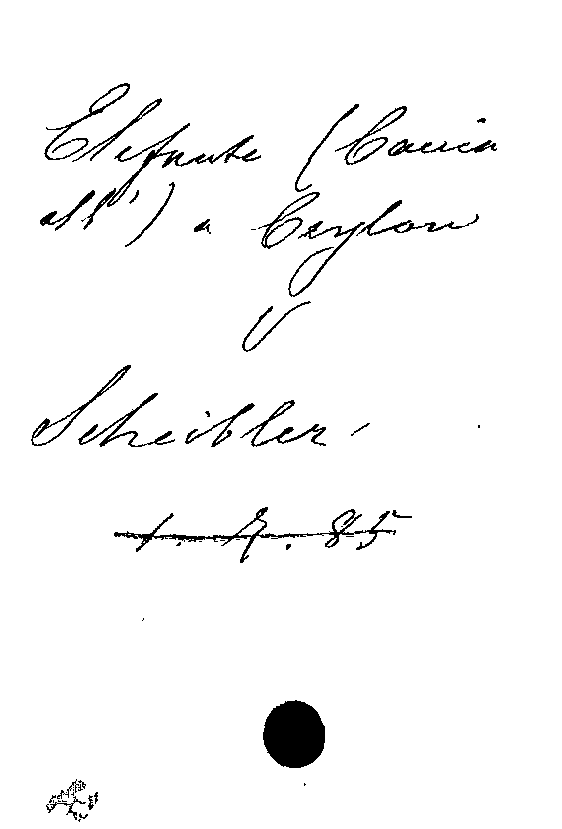 Elefante (Caccia
all') a Ceylon
V
Scheibler.
1. 7. 85